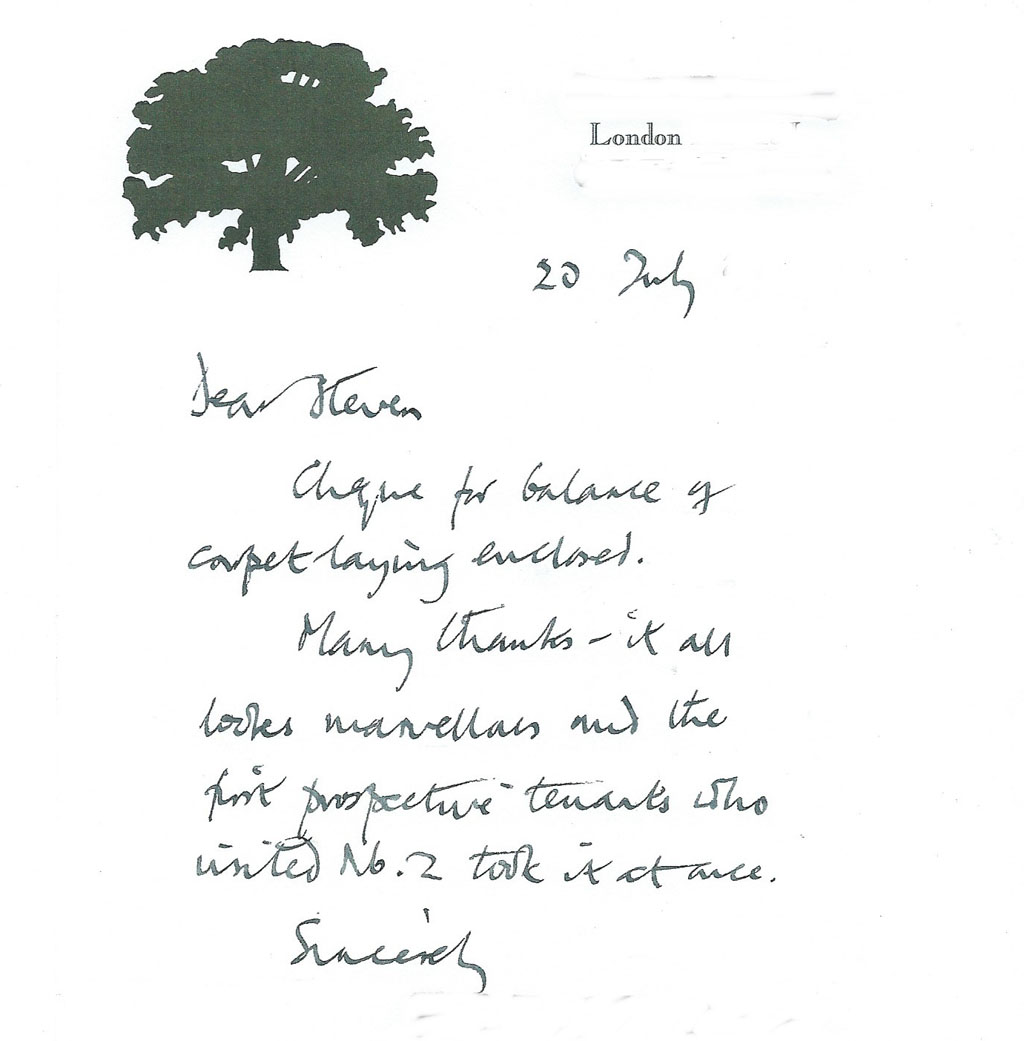 London
20 July
Dear Steven
Cheque for balance of
carpet laying enclosed.
Many thanks - it all
looks marvellous and the
first prospective tenants who
visited No. 2 took it at once.
Sincerely